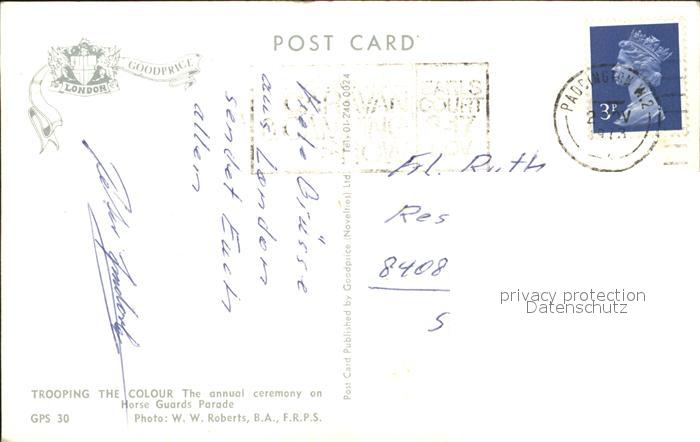 POST CARD
GOODPRICE
LONDON
EARLS
COURT
PADDINGTON W.2
1973
3P
Viele Grüsse
aus London
sendet Euch
allen
Frl. Ruth
Res
8408
S
privacy protection
Datenschutz
Post Card Published by Goodprice (Novelties) Ltd. Tel. 01-240 0024
TROOPING THE COLOUR The annual ceremony on
Horse Guards Parade
GPS 30 Photo: W. W. Roberts, B.A., F.R.P.S.